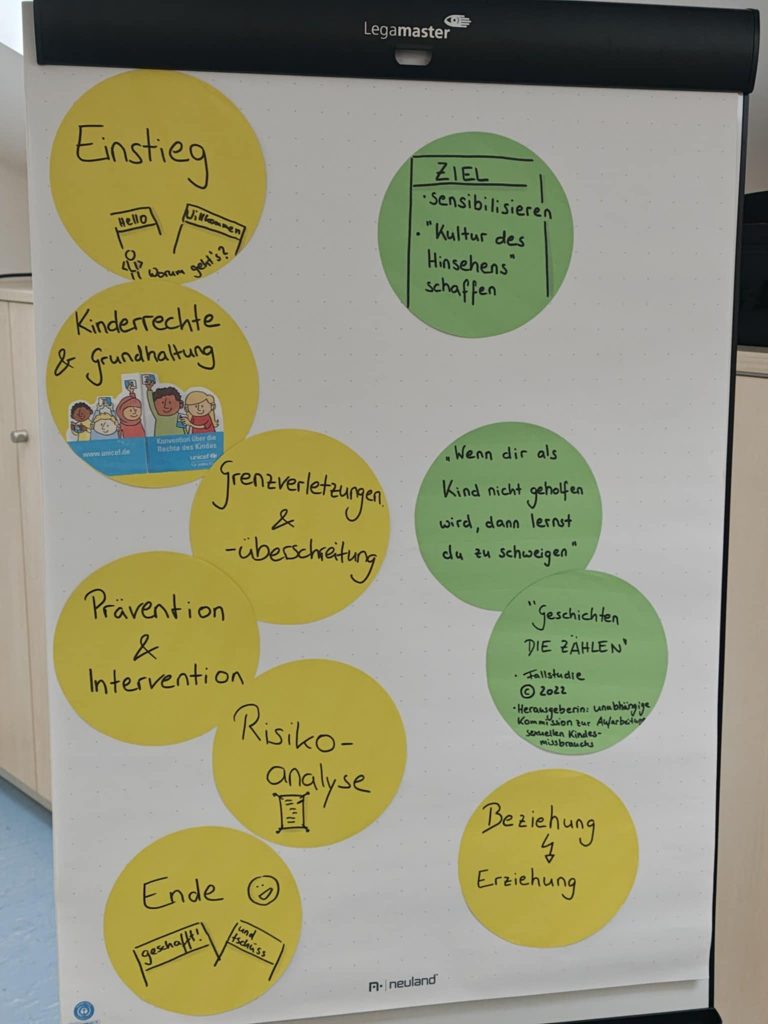 Legamaster
Einstieg
Hello
Willkommen
Worum geht's?
Kinderrechte
& Grundhaltung
www.unicef.de
Konvention über die
Rechte des Kindes
unicef
Grenzverletzungen
&
-überschreitung
Prävention
&
Intervention
Risiko-
analyse
Ende
geschafft!
und
tschüss
ZIEL
· sensibilisieren
· "Kultur des
Hinsehens"
schaffen
„Wenn dir als
Kind nicht geholfen
wird, dann lernst
du zu schweigen"
"Geschichten
DIE ZÄHLEN"
· Fallstudie
© 2022
· Herausgeberin: unabhängige
Kommission zur Aufarbeitung
sexuellen Kindes-
missbrauchs
Beziehung
Erziehung
neuland